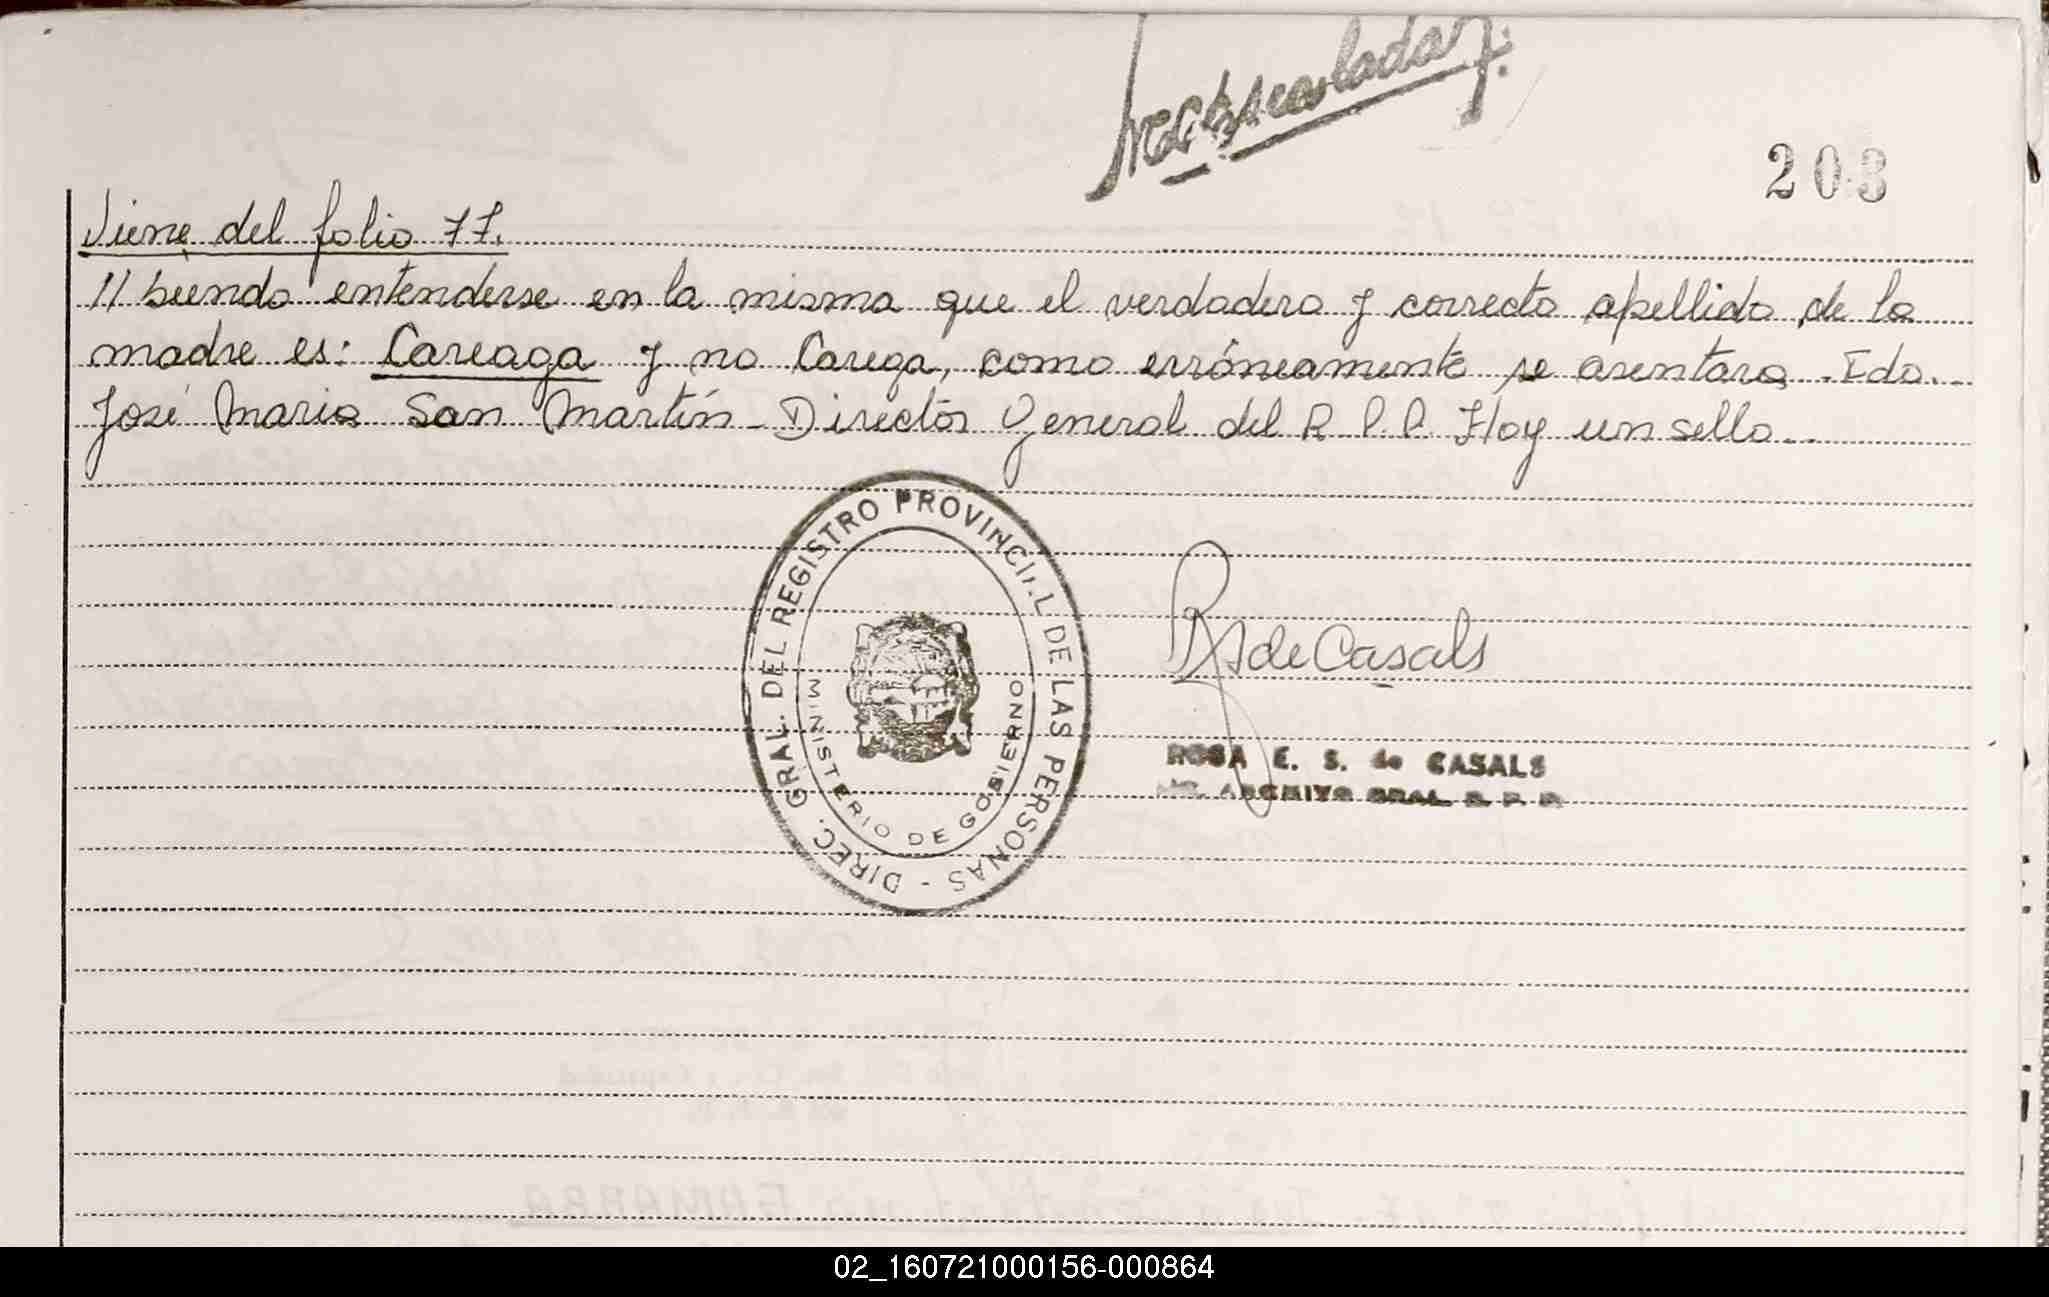 Microscopiada
203
Viene del folio 77.
// biendo entenderse en la misma que el verdadero y correcto apellido de la
madre es: Careaga y no Carega, como erróneamente se asentara. Fdo.
José Maria San Martín - Director General del R. P. P. Hay un sello.
DIREC. GRAL. DEL REGISTRO PROVINCIAL DE LAS PERSONAS -
MINISTERIO DE GOBIERNO
R S de Casals
ROSA E. S. de CASALS
ARCHIVO GRAL R. P. P.
02_160721000156-000864